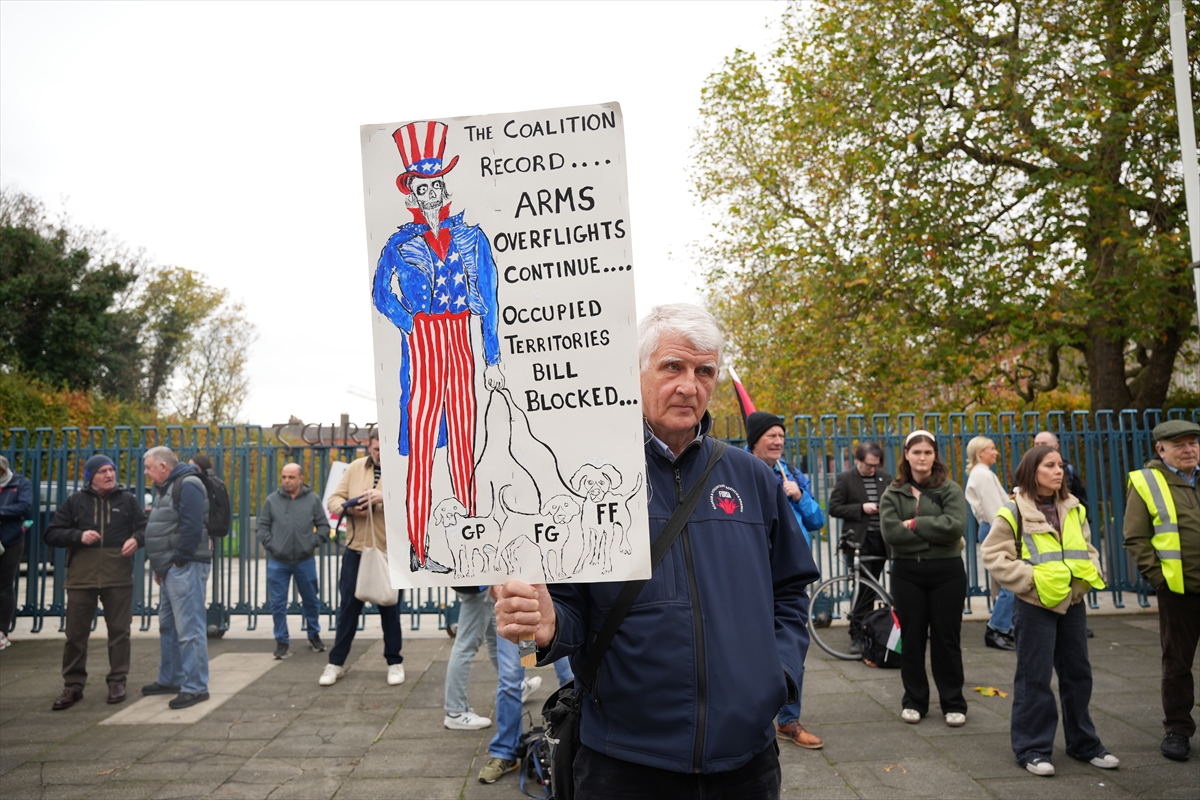 THE COALITION
RECORD....
ARMS
OVERFLIGHTS
CONTINUE....
OCCUPIED
TERRITORIES
BILL
BLOCKED...
GP
FG
FF
FÓRSA